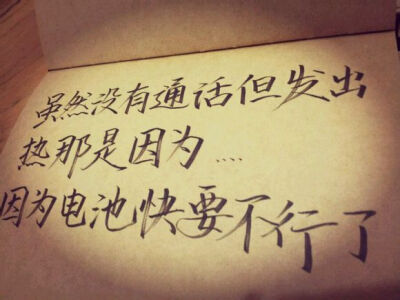 虽然没有通话但发出
热那是因为....
因为电池快要不行了